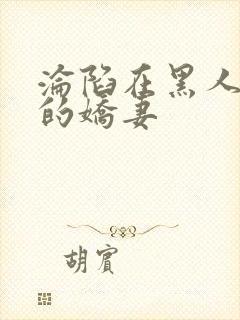 淪陷在黑人
的嬌妻
胡賓